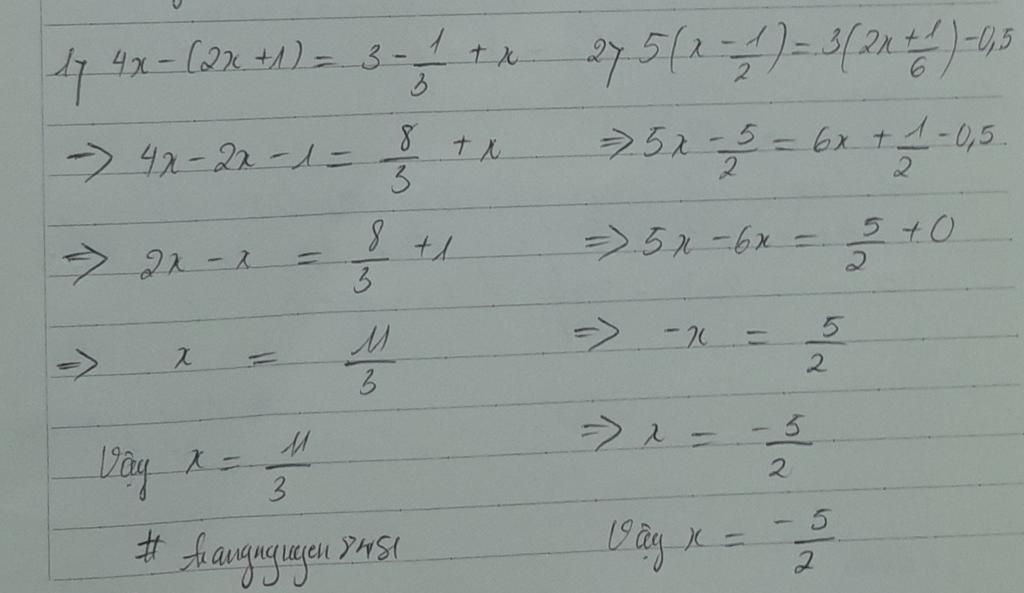 1) 4x - (2x + 1) = 3 - 1/3 + x
=> 4x - 2x - 1 = 8/3 + x
=> 2x - x = 8/3 + 1
=> x = 11/3
Vậy x = 11/3
2) 5(x - 1/2) = 3(2x + 1/6) - 0,5
=> 5x - 5/2 = 6x + 1/2 - 0,5
=> 5x - 6x = 5/2 + 0
=> -x = 5/2
=> x = -5/2
Vậy x = -5/2